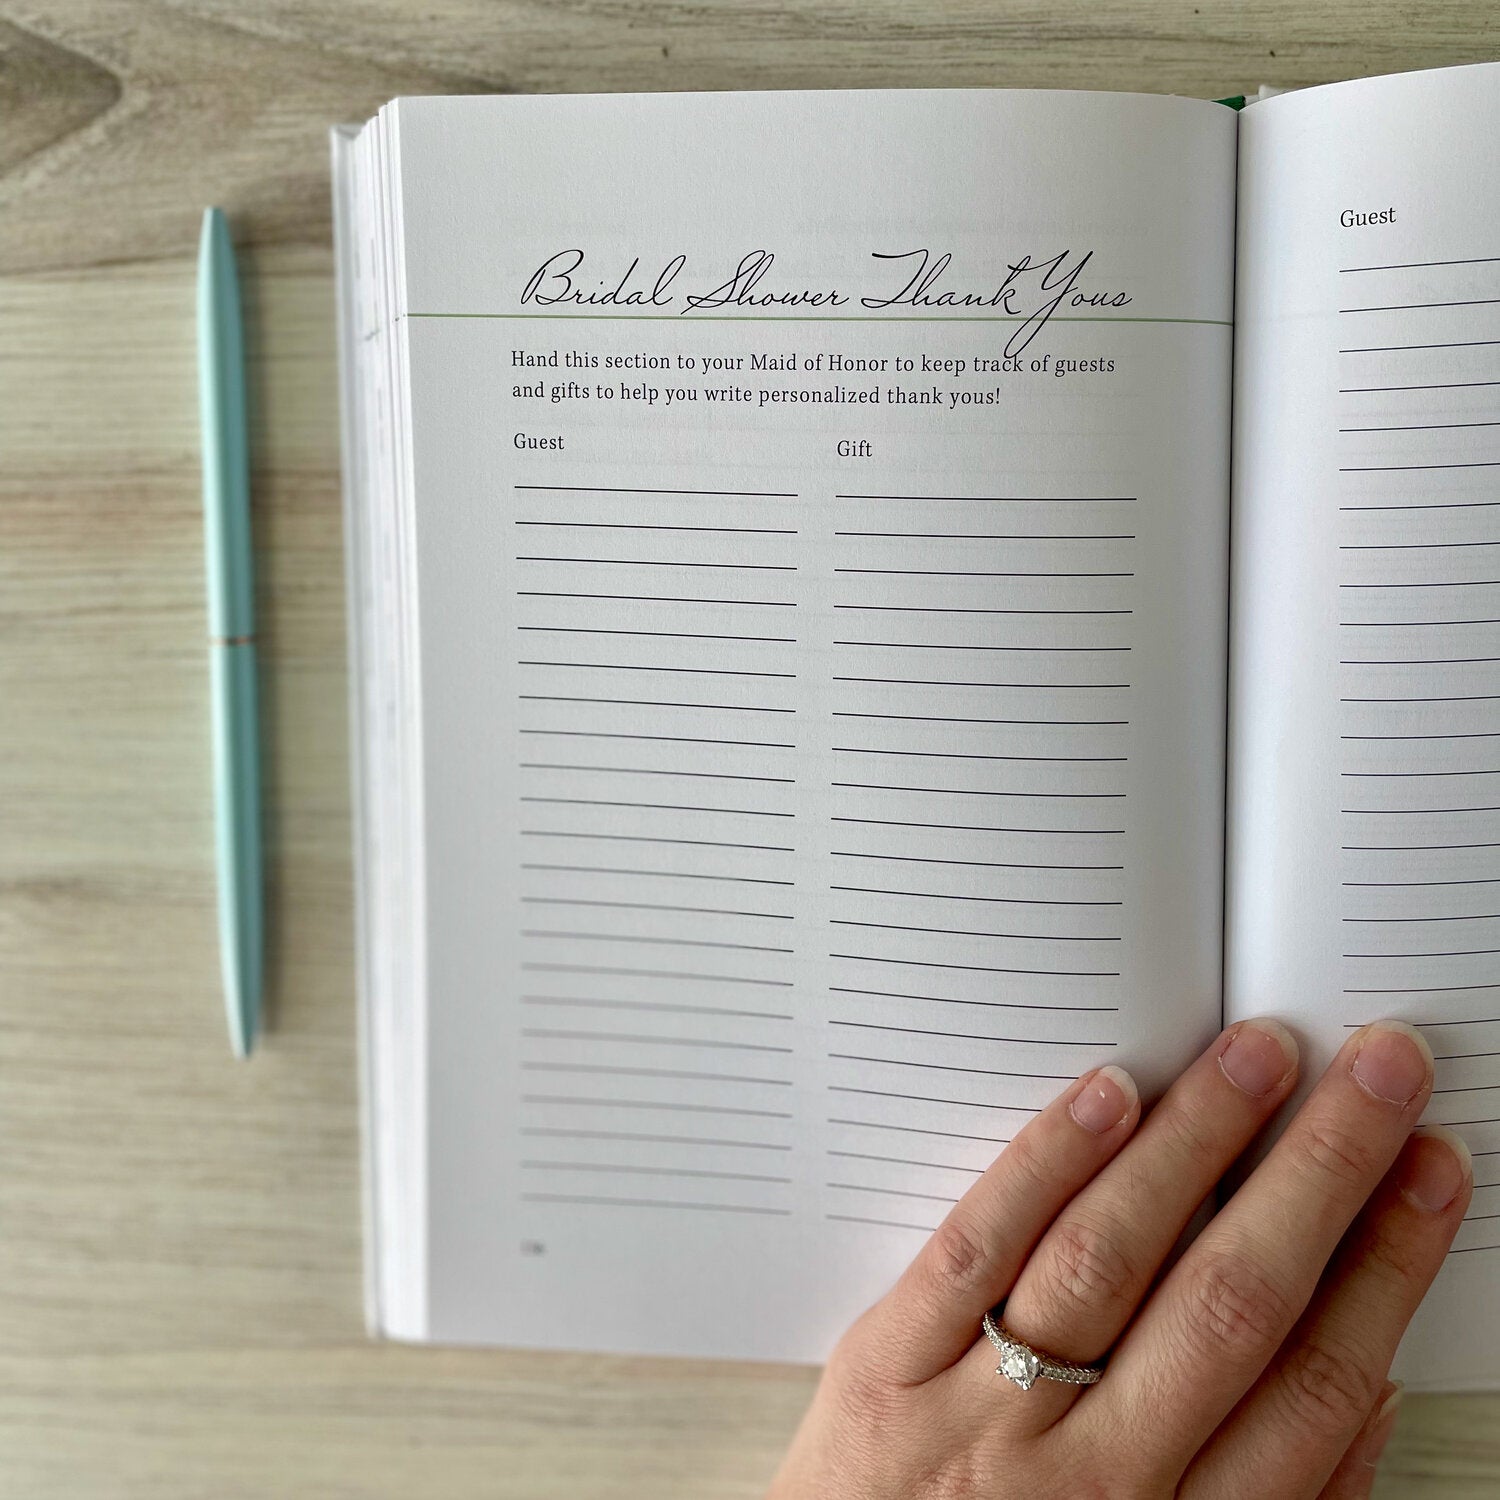 Bridal Shower Thank Yous
Hand this section to your Maid of Honor to keep track of guests
and gifts to help you write personalized thank yous!
Guest Gift
Guest